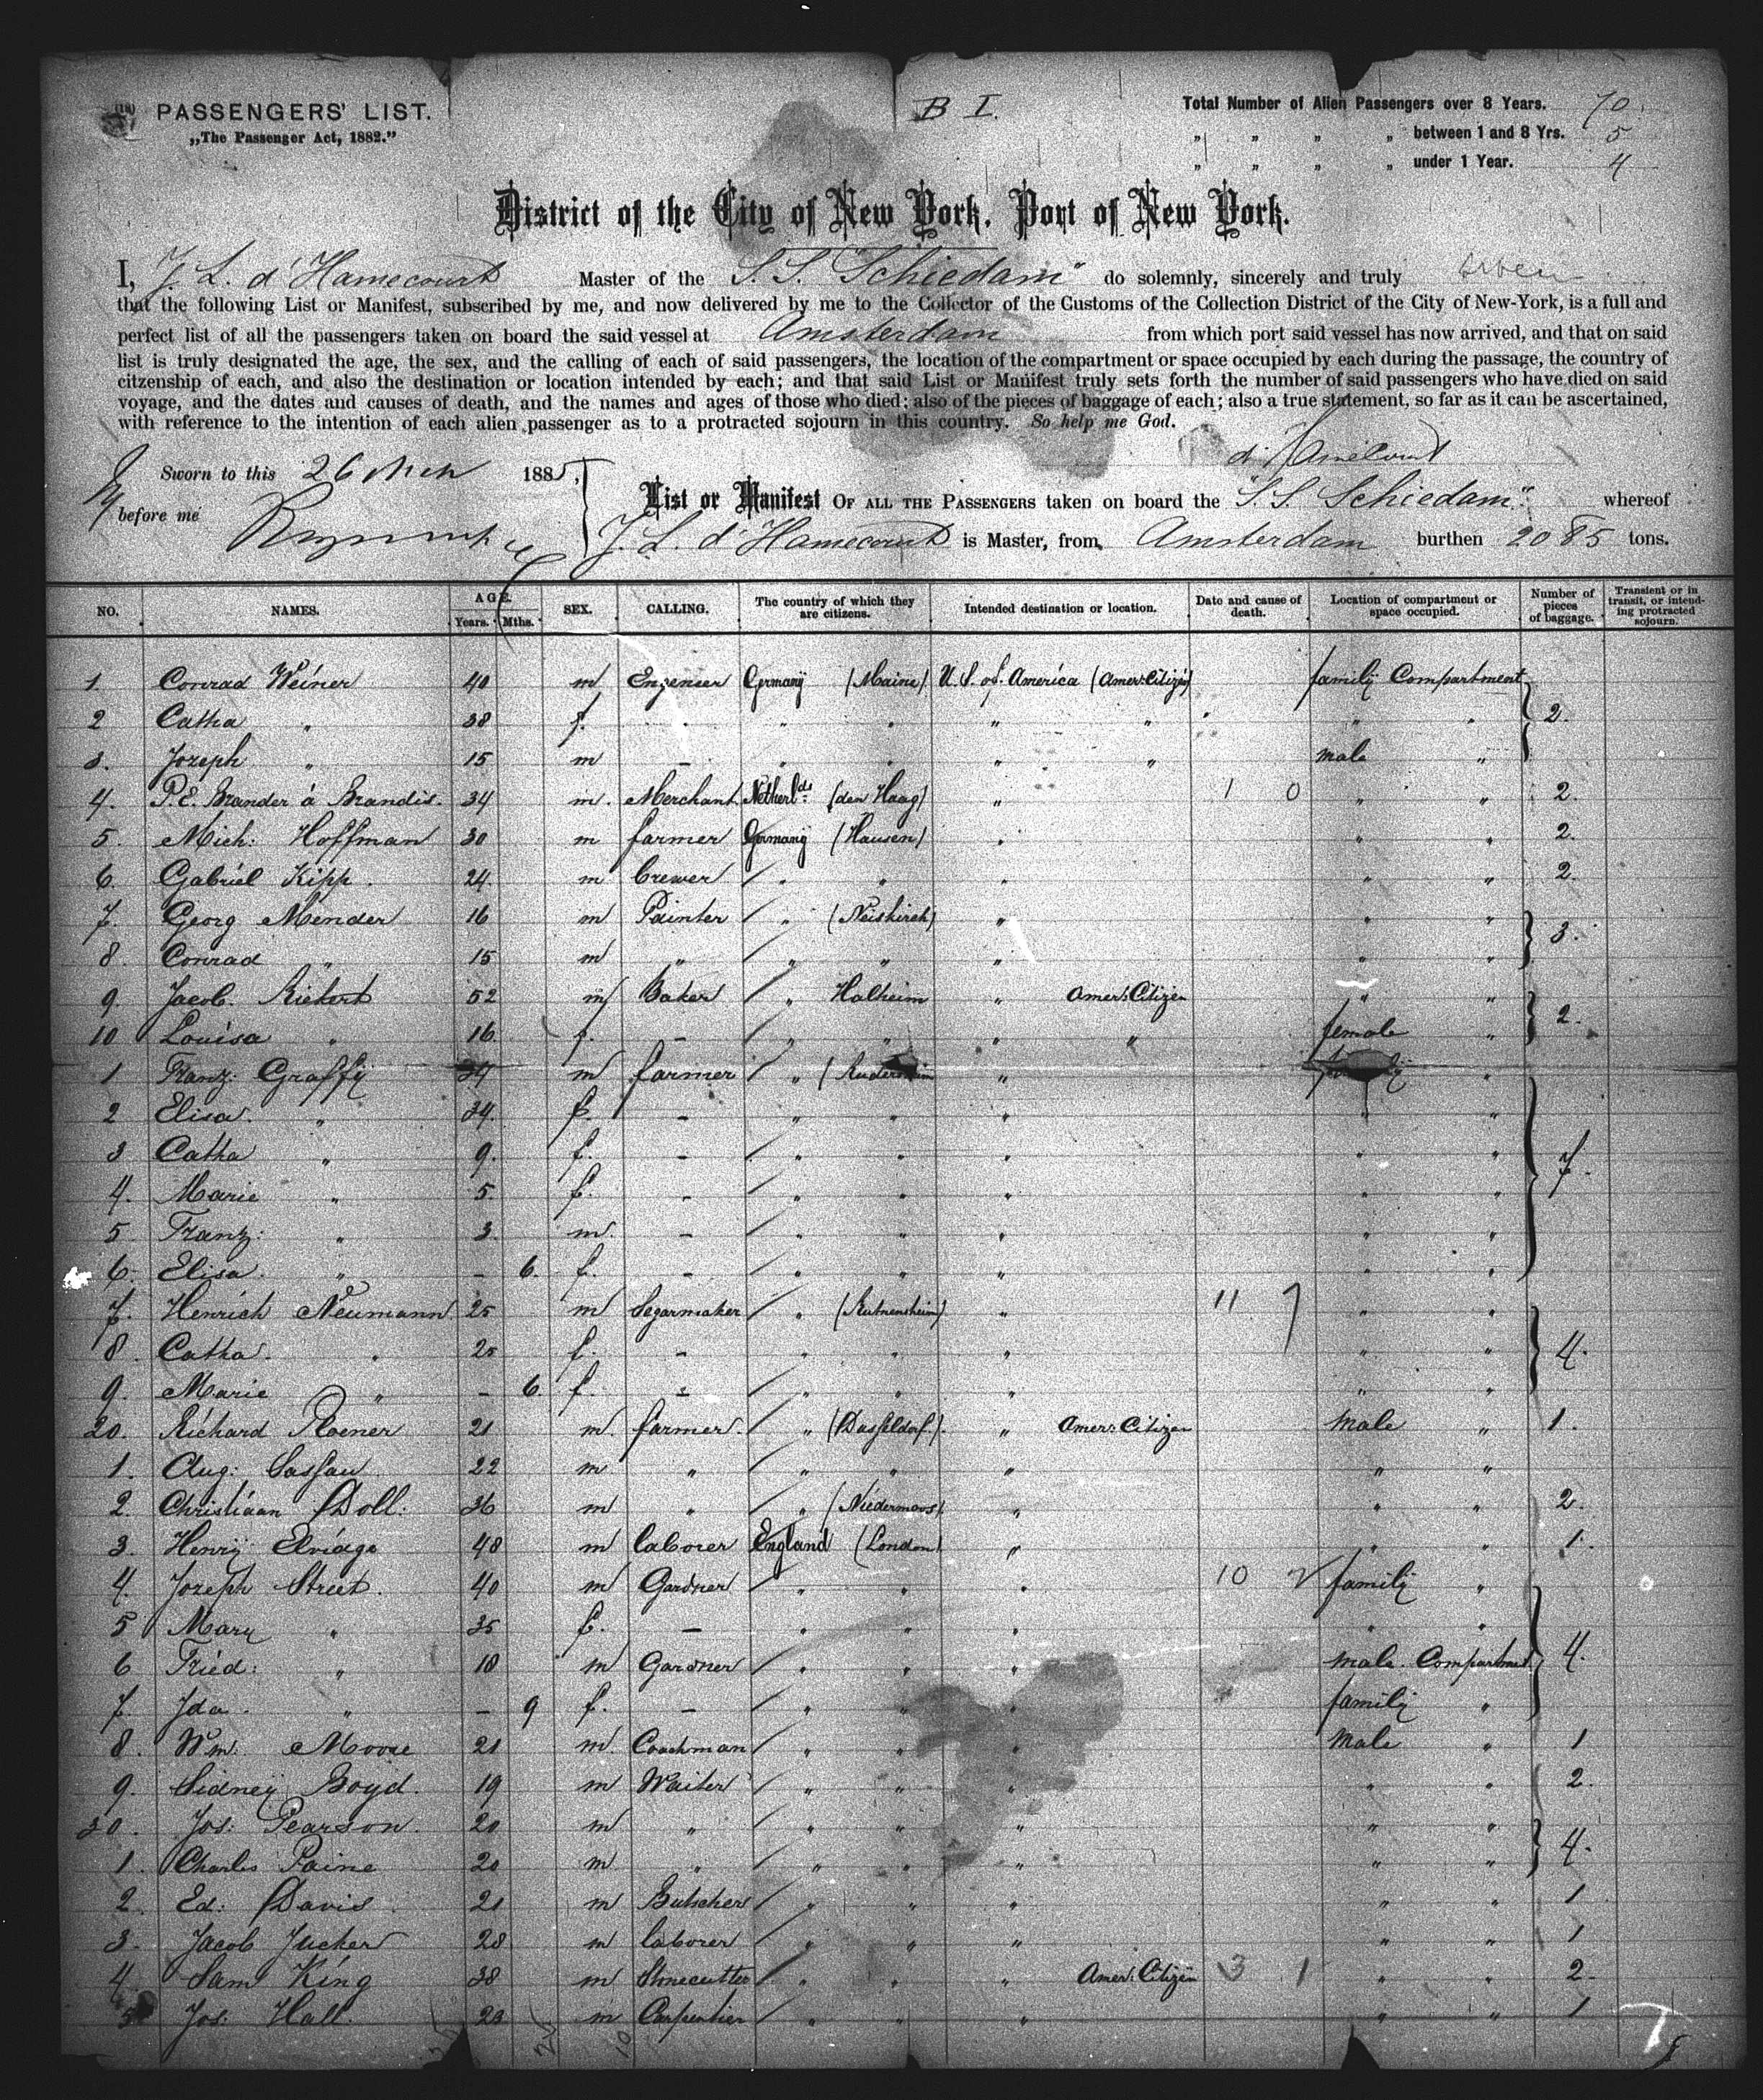 PASSENGERS' LIST.
„The Passenger Act, 1882."
B I.
Total Number of Alien Passengers over 8 Years. 70
„ „ „ „ between 1 and 8 Yrs. 5
„ „ „ „ under 1 Year. 4
District of the City of New York, Port of New York.
I, J. L. d'Hamecourt Master of the S. S. "Schiedam" do solemnly, sincerely and truly
that the following List or Manifest, subscribed by me, and now delivered by me to the Collector of the Customs of the Collection District of the City of New-York, is a full and
perfect list of all the passengers taken on board the said vessel at Amsterdam from which port said vessel has now arrived, and that on said
list is truly designated the age, the sex, and the calling of each of said passengers, the location of the compartment or space occupied by each during the passage, the country of
citzenship of each, and also the destination or location intended by each; and that said List or Manifest truly sets forth the number of said passengers who have died on said
voyage, and the dates and causes of death, and the names and ages of those who died; also of the pieces of baggage of each; also a true statement, so far as it can be ascertained,
with reference to the intention of each alien passenger as to a protracted sojourn in this country. So help me God.
Sworn to this 26 1885,
before me
List or Manifest OF ALL THE PASSENGERS taken on board the "S. S. Schiedam" whereof
J. L. d'Hamecourt is Master, from Amsterdam burthen 2085 tons.
NO. NAMES. AGE. Years. Mths. SEX. CALLING. The country of which they are citizens. Intended destination or location. Date and cause of death. Location of compartment or space occupied. Number of pieces of baggage. Transient or in transit, or intending protracted sojourn.
1. Conrad Weiner 40 m Engeneer Germany (Maine) U. S. of America (Amer: Citizen) family Compartment
2 Catha „ 38 f. „ „ „ „ „ „ 2.
3. Jozeph „ 15 m – „ „ „ „ male „
4. P. E. Brander à Brandis. 34 m. Merchant Netherlds: (den Haag) „ 1 0 „ „ 2.
5. Mich: Hoffman 30 m farmer Germany (Hausen) „ „ „ 2.
6. Gabriel Kipp. 24. m brewer „ „ „ „ „ 2.
7. Georg Mender 16 m Painter „ (Neiskirch) „ „ „
8. Conrad „ 15 m „ „ „ „ „ „ 3.
9. Jacob Riekert 52 m Baker „ Halheim „ Amer: Citizen „ „
10 Louisa „ 16. f. – „ „ „ „ female „ 2.
1 Franz: Graffy 34 m farmer „ „ family „
2 Elisa. „ 34. f. – „ „ „ „ „
3 Catha „ 9. f. – „ „ „ „ „
4. Marie „ 5. f. – „ „ „ „ „ 7.
5. Franz: „ 3. m. – „ „ „ „ „
6. Elisa. „ – 6. f. – „ „ „ „ „
7. Henrich Neumann. 25 m Segarmaker „ „ 11 7 „ „
8. Catha. „ 25 f. – „ „ „ „ „ 4.
9. Marie „ – 6. f. – „ „ „ „ „
20. Richard Roener 21 m. farmer. „ (Dusseldorf). „ Amer: Citizen Male „ 1.
1. Aug: Sassau 22 m. „ „ „ „ „ „
2. Christiaan Doll. 36 m „ „ (Niedermoos) „ „ „ 2.
3. Henry Elvidge 48 m laborer England (London) „ „ „ 1.
4. Jozeph Street. 40 m Gardner „ „ „ 10 2 family „
5 Mary „ 35 f. – „ „ „ „ „
6 Fried: „ 18 m Gardner „ „ „ male. Compartment. 4.
7. Ida. „ – 9 f. – „ „ „ family „
8. Wm: Moore 21 m. Coachman „ „ „ Male „ 1
9. Sidney Boyd. 19 m Waiter „ „ „ „ „ 2.
30. Jos: Pearson. 20 m „ „ „ „ „ „
1. Charles Paine 20 m „ „ „ „ „ „ 4.
2. Ed: Davis 21 m Butscher „ „ „ „ „ 1
3. Jacob Jucker 28 m laborer „ „ „ „ „ 1
4 Sam King 38 m Stonecutter „ „ „ Amer: Citizen 3 1 „ „ 2.
5 Jos: Hall. 23 m Carpentier „ „ „ „ „ 1